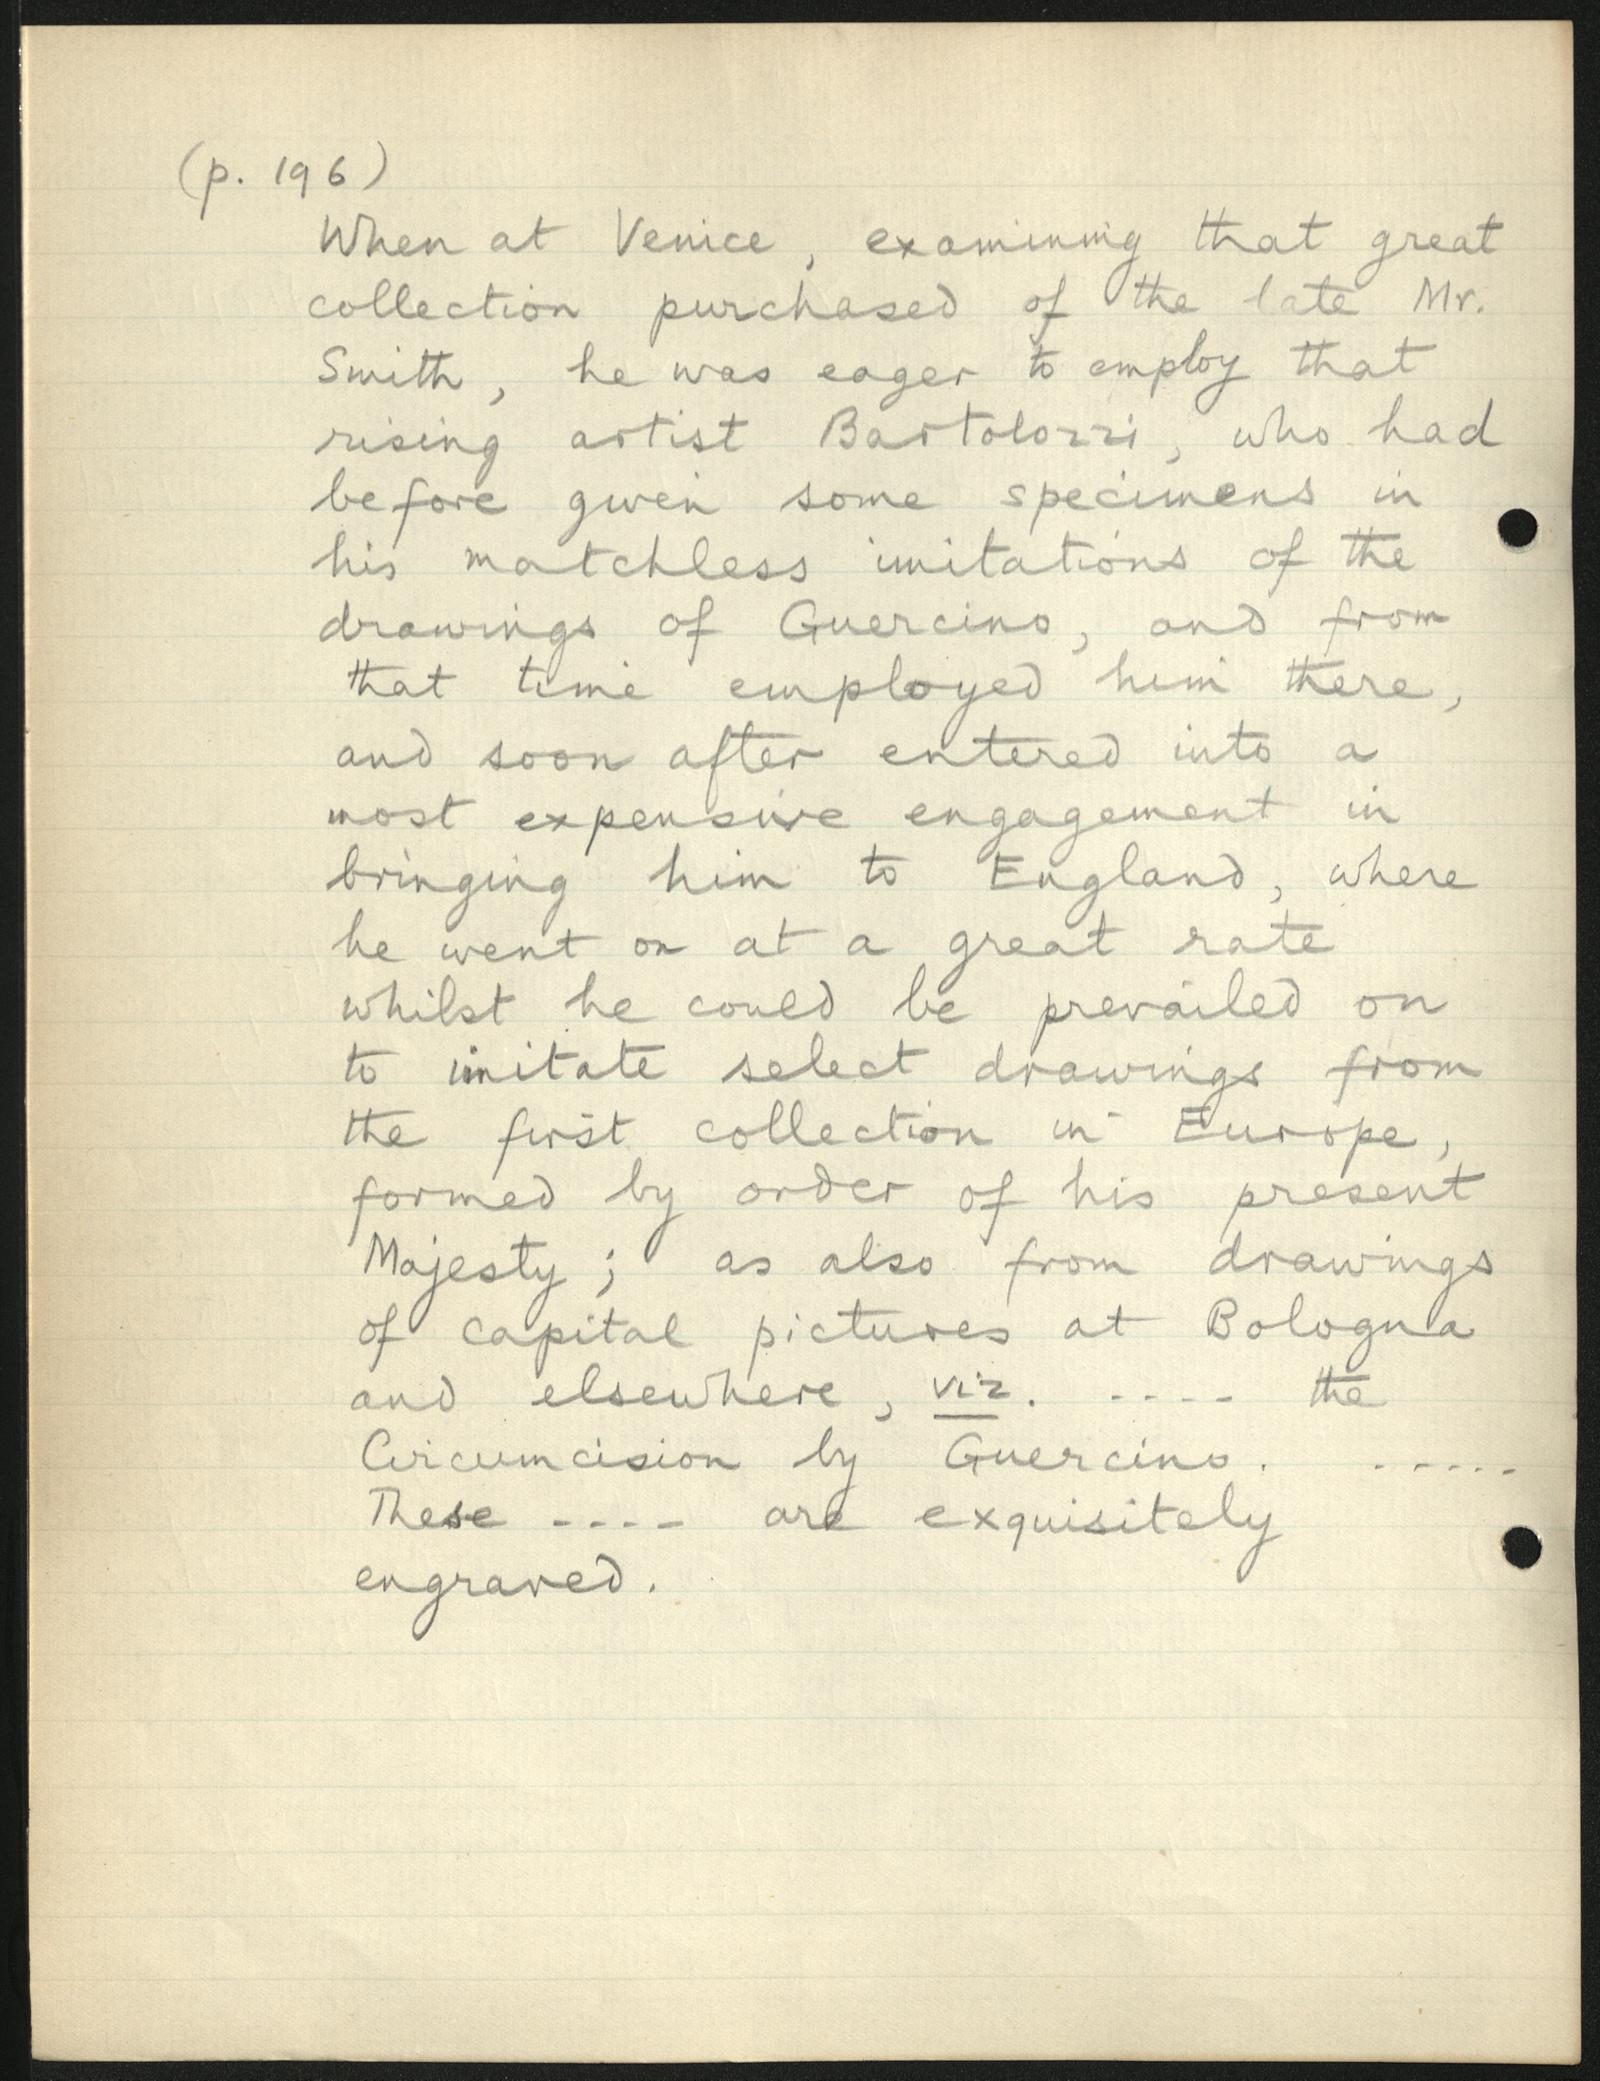 (p. 196)
When at Venice, examining that great
collection purchased of the late Mr.
Smith, he was eager to employ that
rising artist Bartolozzi, who had
before given some specimens in
his matchless imitations of the
drawings of Guercino, and from
that time employed him there,
and soon after entered into a
most expensive engagement in
bringing him to England, where
he went on at a great rate
whilst he could be prevailed on
to imitate select drawings from
the first collection in Europe,
formed by order of his present
Majesty; as also from drawings
of capital pictures at Bologna
and elsewhere, viz. ---- the
Circumcision by Guercino. -----
These ---- are exquisitely
engraved.